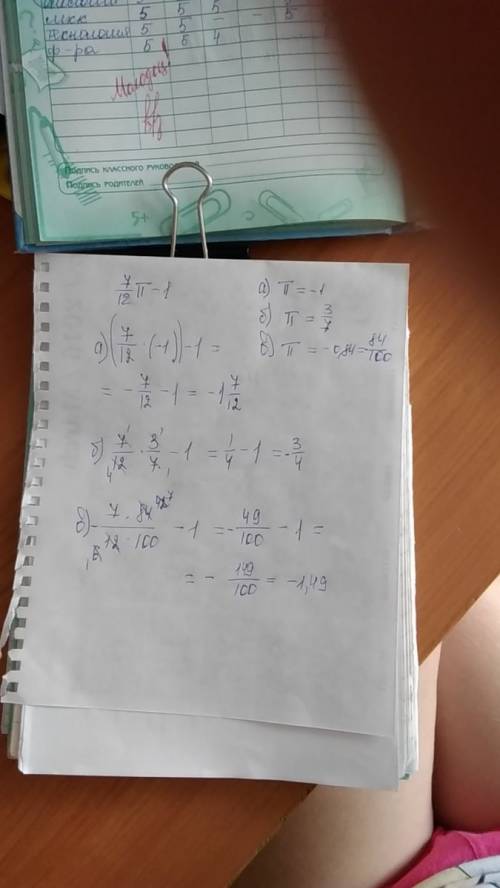 мхк 5 5 - - 5
технология 5 5
ф-ра 5 5 4
Молодец!
Подпись классного руководителя
Подпись родителей
5+
7/12 π - 1
а) π = -1
б) π = 3/7
в) π = -0,84 = 84/100
а) (7/12 · (-1)) - 1 =
= - 7/12 - 1 = -1 7/12
б) 7/12 · 3/7 - 1 = 1/4 - 1 = - 3/4
в) - 7 · 84/12 · 100 - 1 = - 49/100 - 1 =
= - 149/100 = -1,49